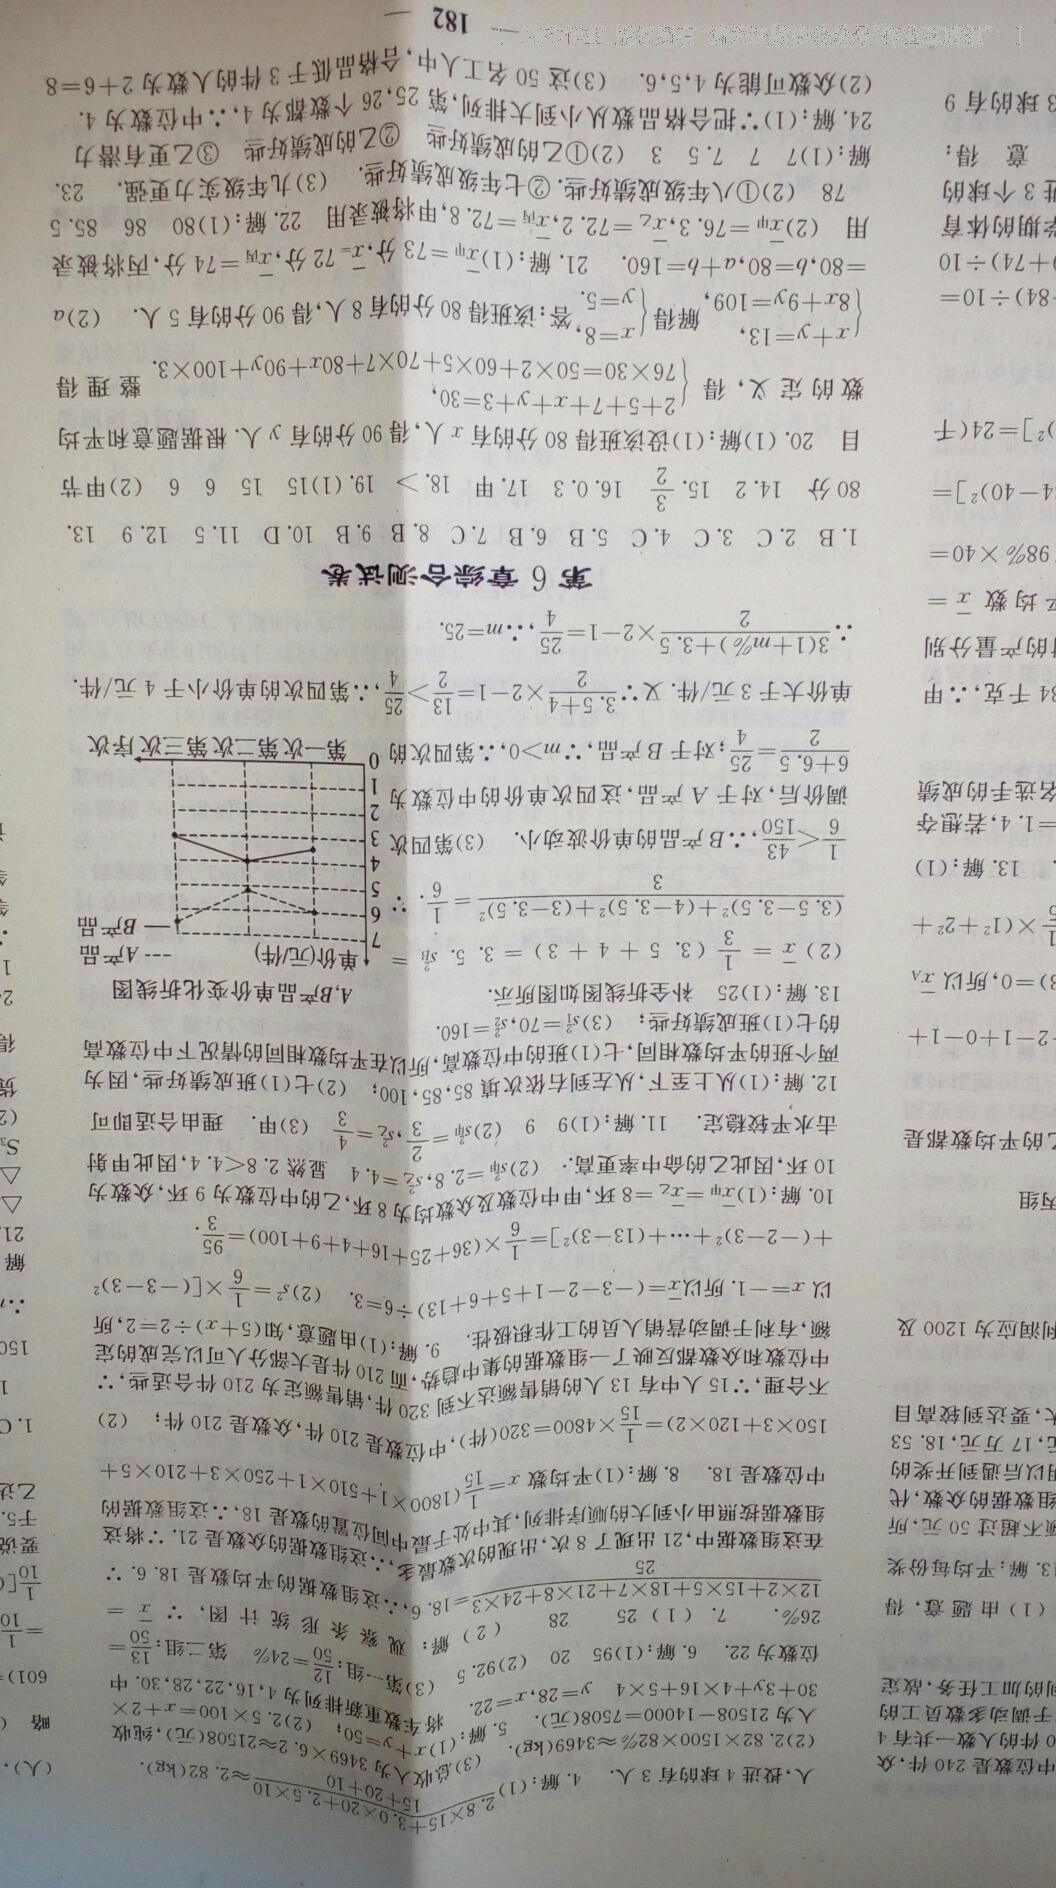 人,投进4球的有3人. 4.解:(1)(2.8×15+3.0×20+2.5×10)/(15+20+10)≈2.82(kg).
(2)2.82×1500×82%≈3469(kg). (3)总收入为3469×6.2≈21508(元),纯收
入为21508-14000=7508(元). 5.解:(1)x+y=50; (2)2.5×100=x+2×
30+3y+4×16+5×4 y=28,x=22. 将车数重新排列为4,16,22,28,30.中
位数为22. 6.解:(1)95 20 (2)92.5 (3)第一组:12/50=24% 第二组:13/50=
26%. 7.(1)25 28 (2)解:观察条形统计图,∵x̄=
(12×2+15×5+18×7+21×8+24×3)/25=18.6,∴这组数据的平均数是18.6.∵
在这组数据中,21出现了8次,出现的次数最多,∴这组数据的众数是21.∵将这
组数据按照由小到大的顺序排列,其中处于最中间位置的数是18,∴这组数据的
中位数是18. 8.解:(1)平均数x̄=1/15(1800×1+510×1+250×3+210×5+
150×3+120×2)=1/15×4800=320(件),中位数是210件,众数是210件; (2)
不合理,∵15人中有13人的销售额达不到320件,销售额定为210件合适些,∵
中位数和众数都反映了一组数据的集中趋势,而210件是大部分人可以完成的定
额,有利于调动营销人员的工作积极性. 9.解:(1)由题意,知(5+x)÷2=2,所
以x=-1.所以x̄=(-3-2-1+5+6+13)÷6=3. (2)s²=1/6×[(-3-3)²
+(-2-3)²+…+(13-3)²]=1/6×(36+25+16+4+9+100)=95/3.
10.解:(1)x̄甲=x̄乙=8环,甲中位数及众数均为8环,乙的中位数为9环,众数为
10环,因此乙的命中率更高. (2)s²甲=2.8,s²乙=4.4 显然2.8<4.4,因此甲射
击水平较稳定. 11.解:(1)9 9 (2)s²甲=2/3,s²乙=4/3 (3)甲. 理由合适即可
12.解:(1)从上至下,从左到右依次填85,85,100; (2)七(1)班成绩好些,因为
两个班的平均数相同,七(1)班的中位数高,所以在平均数相同的情况下中位数高
的七(1)班成绩好些; (3)s₁²=70,s₂²=160.
13.解:(1)25 补全折线图如图所示.
A,B产品单价变化折线图
单价(元/件)
--- A产品
— B产品
7
6
5
4
3
2
1
0
第一次 第二次 第三次 序次
(2)x̄=1/3(3.5+4+3)=3.5. s²B=
((3.5-3.5)²+(4-3.5)²+(3-3.5)²)/3=1/6. ∵
1/6<43/150,∴B产品的单价波动小. (3)第四次
调价后,对于A产品,这四次单价的中位数为
(6+6.5)/2=25/4;对于B产品,∵m>0,∴第四次的
单价大于3元/件.又∵(3.5+4)/2×2-1=13/2>25/4,∴第四次的单价小于4元/件.
∴(3(1+m%)+3.5)/2×2-1=25/4,∴m=25.
第6章综合测试卷
1.B 2.C 3.C 4.C 5.B 6.B 7.C 8.B 9.B 10.D 11.5 12.9 13.
80分 14.2 15.2/3 16.0.3 17.甲 18.> 19.(1)15 15 6 6 (2)甲节
目 20.(1)解:(1)设该班得80分的有x人,得90分的有y人.根据题意和平均
数的定义,得{2+5+7+x+y+3=30, 76×30=50×2+60×5+70×7+80x+90y+100×3. 整理得
{x+y=13, 8x+9y=109, 解得{x=8, y=5. 答:该班得80分的有8人,得90分的有5人. (2)a
=80,b=80,a+b=160. 21.解:(1)x̄甲=73分,x̄=72分,x̄丙=74分,丙将被录
用 (2)x̄甲=76.3,x̄乙=72.2,x̄丙=72.8,甲将被录用 22.解:(1)80 86 85.5
78 (2)①八年级成绩好些.②七年级成绩好些. (3)九年级实力更强. 23.
解:(1)7 7 7.5 3 (2)①乙的成绩好些 ②乙的成绩好些 ③乙更有潜力
24.解:(1)∵把合格品数从小到大排列,第25,26个数都为4,∴中位数为4.
(2)众数可能为4,5,6. (3)这50名工人中,合格品低于3件的人数为2+6=8
— 182 —